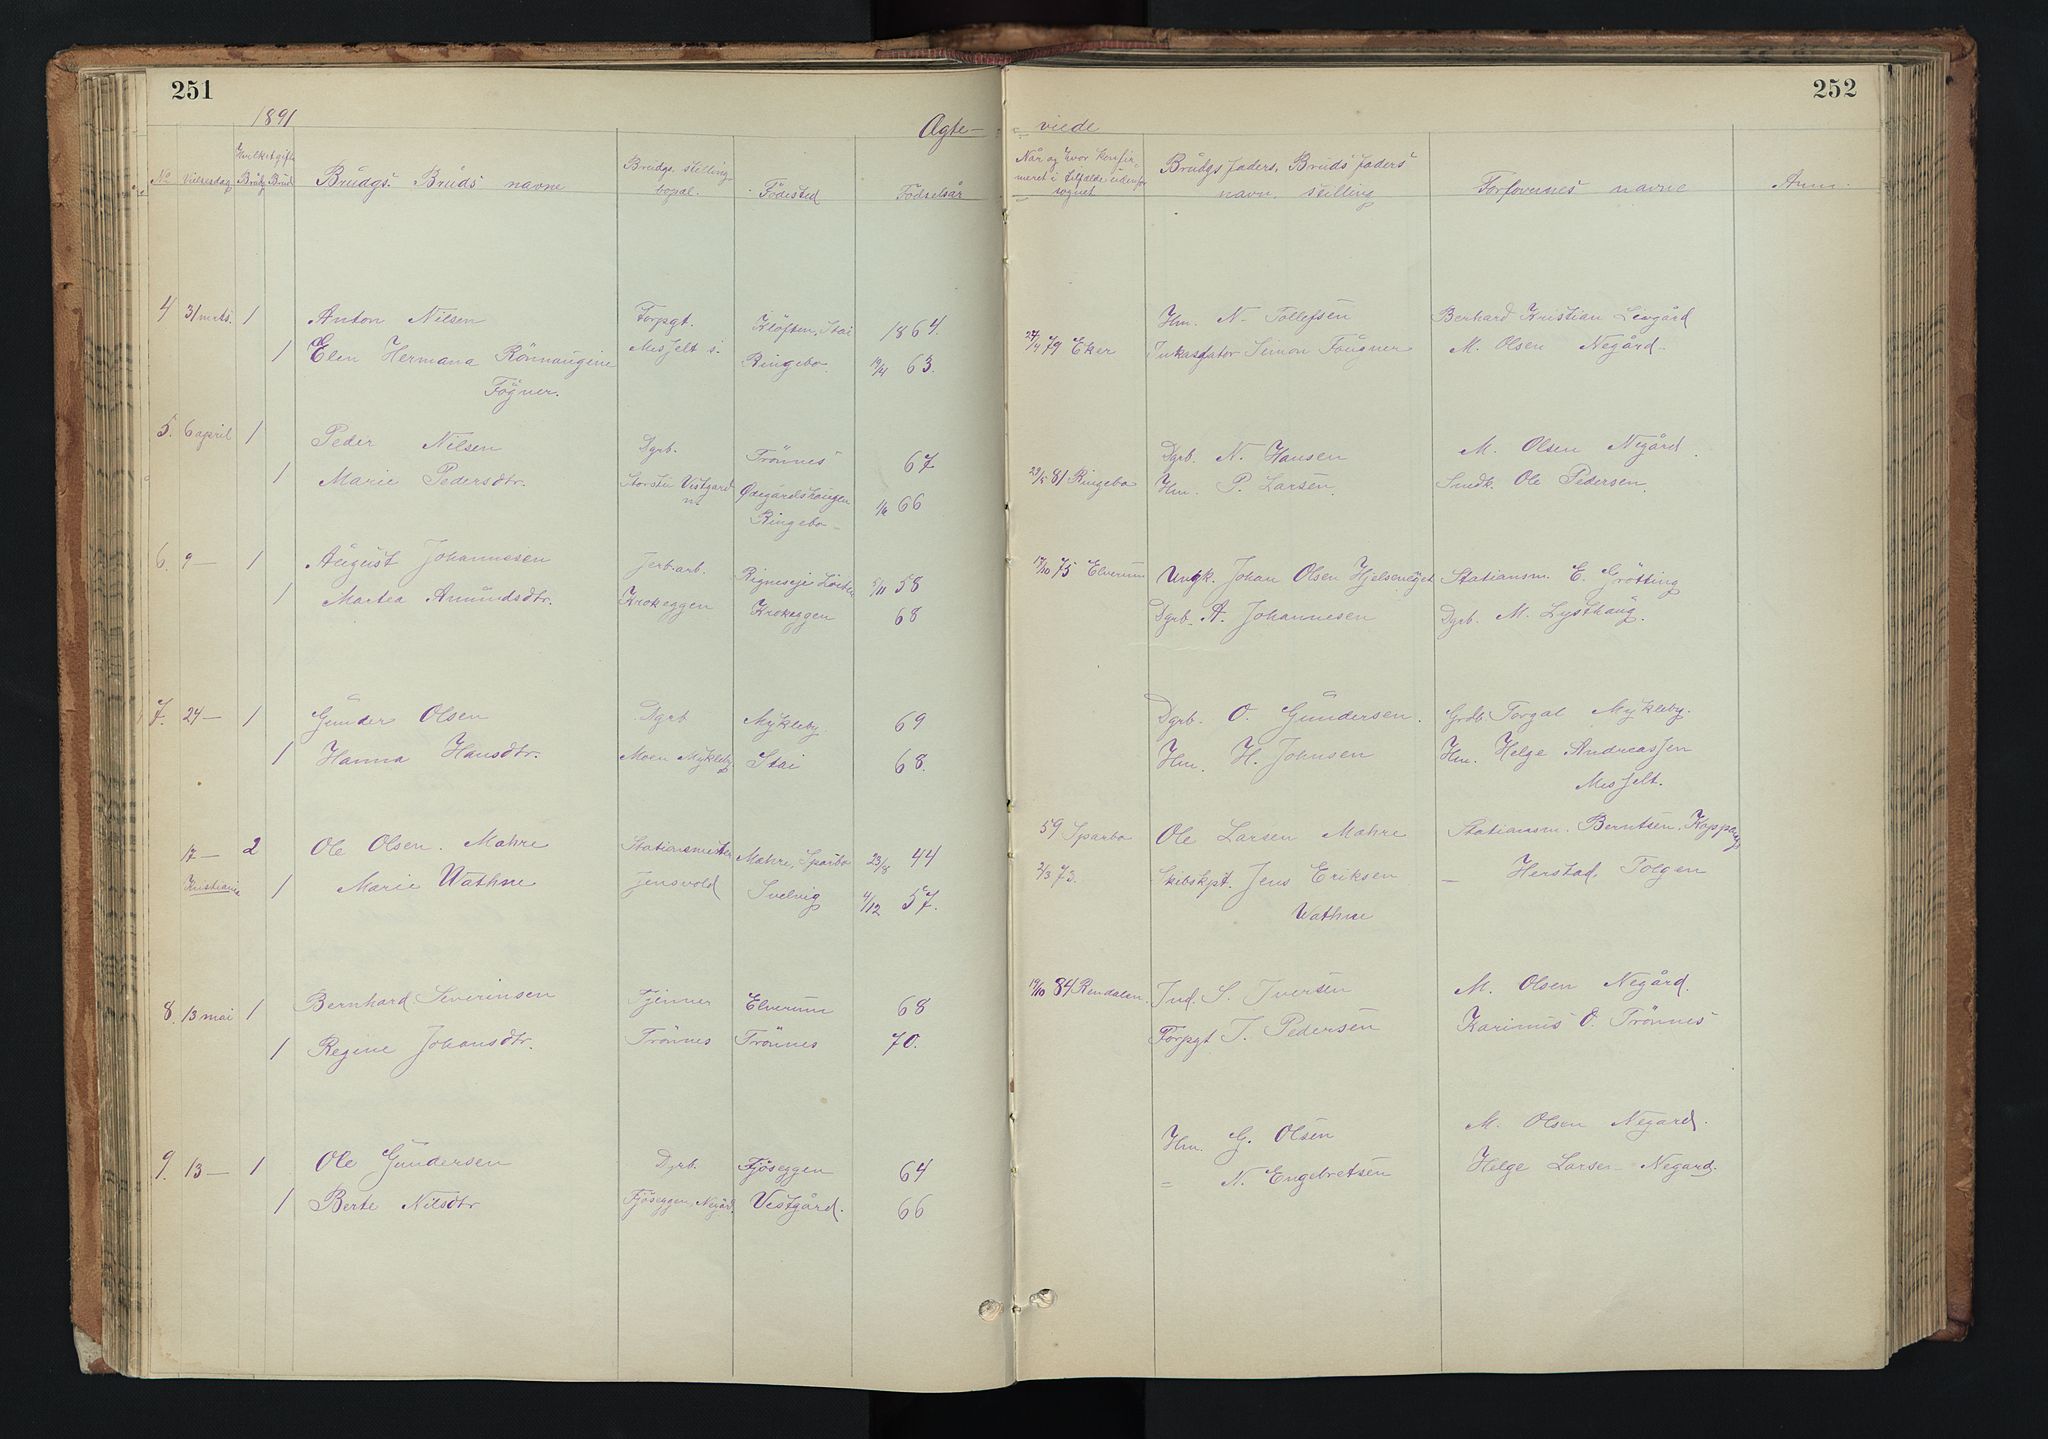 251
252
1891
Ægte-
viede
No Vielsesdag Hvilket gifte Brudg. Brud Brudgs. Bruds navne Brudgs. stilling bopæl. Födested Födselsår
Når og hvor konfirmeret i tilfælde udenfor sognet Brudgs faders, Bruds faders navn, stilling Forlovernes navne Anm.
4 31 mrts. 1 Anton Nilsen Forpgt. Kloften, Stai 1864. Hm. N. Tollefsen Berhard Kristian Levgård
1 Elen Hermana Rönnaugine Misfelt s. Ringebo. 19/4 63. 27/4 79 Eker Simon Fougner M. Olsen Negård
Fogner.
5. 6 april 1 Peder Nilsen Dgrb. Trönnes 67 Dgrb. N. Hansen M. Olsen Negård.
1 Marie Pedersdtr. Vestgård Øiegårdshaugen 1/6 66 29/5 81 Ringebo Hm. P. Larsen Smdk. Ole Pedersen.
Ringebo
6. 9 — 1 August Johannesen Jerb.arb. Löiten 5/11 58 17/10 75 Elverum Ungk. Johan Olsen Stationsm. E. Grötting
1 Martea Amundsdtr. Krokeggen Krokeggen 68 Dgrb. A. Johannesen Dgrb. M. Lysthaug.
7. 24 — 1 Gunder Olsen Dgrb Mykleby 69 Dgrb. O. Gundersen. Grdb. Torgal Mykleby.
1 Hanna Hansdtr. Moen Mykleby Stai 68. Hm. H. Johnsen Hm. Helge Andreassen
Misfelt.
17 — 2 Ole Olsen Mæhre Stationsmester Mæhre, Sparbo 23/8 44 59 Sparbo Ole Larsen Mæhre Stationsm. Berntsen, Koppang
Kristiania 1 Marie Wathne Jensvold Svelvig 4/12 57. 2/3 73. Skibskpt. Jens Eriksen — Herstad, Tolgen
Wathne
8. 13 mai 1 Bernhard Severinsen Tjener Elverum 68 19/10 84 Rendalen Ind. S. Iversen M. Olsen Negård.
1 Regine Johansdtr. Trönnes Trönnes 70. Forpgt J. Pedersen Karinius O. Trönnes
9. 13 — 1 Ole Gundersen Dgrb. Fjöseggen 64 Hm. G. Olsen M. Olsen Negård.
1 Berte Nilsdtr Fjöseggen, Negård Vestgård. 66 = N. Engebretsen Helge Larsen Negard.